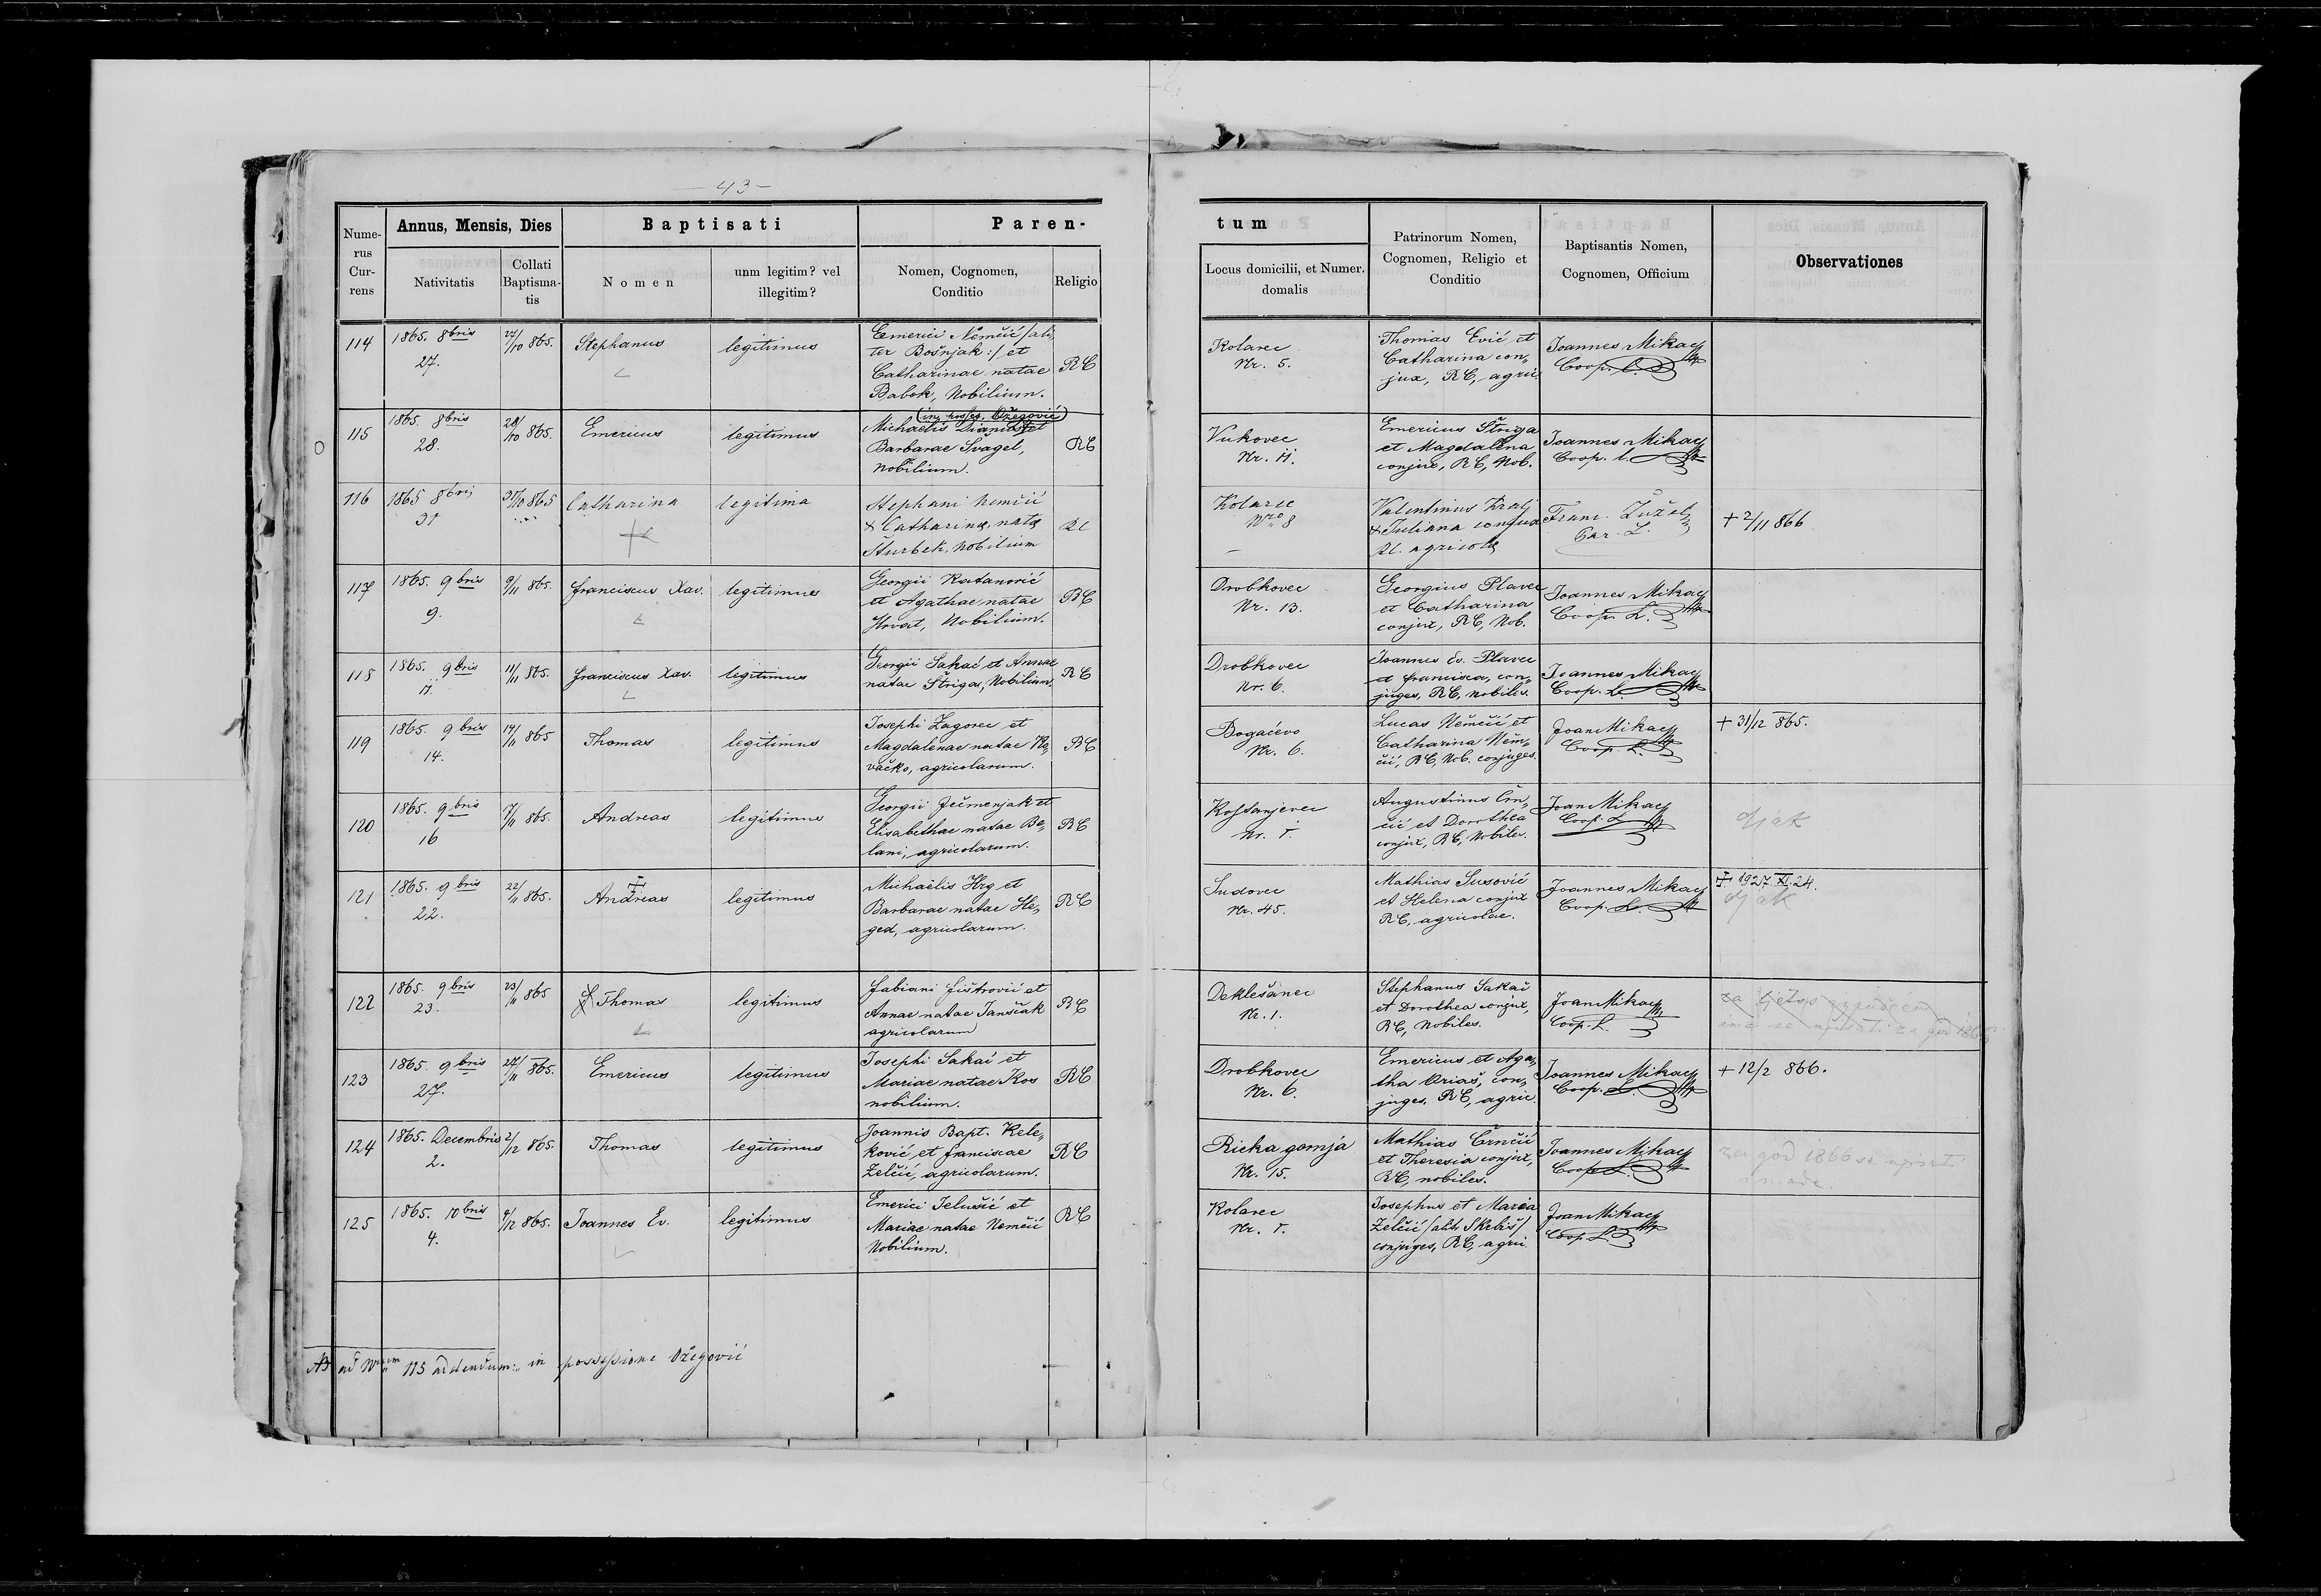 — 43 —
Nume- rus Cur- rens
Annus, Mensis, Dies
Nativitatis
Collati Baptisma- tis
Baptisati
Nomen
unm legitim? vel illegitim?
Paren-
Nomen, Cognomen, Conditio
Religio
tum
Locus domicilii, et Numer. domalis
Patrinorum Nomen, Cognomen, Religio et Conditio
Baptisantis Nomen, Cognomen, Officium
Observationes
114
1865. 8bris
27.
27/10 865.
Stephanus
legitimus
Emerici Nemčić /:ali„
ter Bošnjak:/ et
Catharinae natae
Babok, Nobilium.
RC
Kolarec
Nr. 5.
Thomas Ević et
Catharina con„
jux, RC, agric.
Joannes Mikac
Coop. L.
115
1865. 8bris
28.
28/10 865.
Emericus
legitimus
(in posses. Ožegović)
Michaelis et
Barbarae Švagel,
Nobilium.
RC
Vukovec
Nr. 11.
Emericus Štriga
et Magdalena
conjux, RC, Nob.
Joannes Mikac
Coop. L.
116
1865 8bris
31
31/10 865
Catharina
legitima
Stephani Nemčić
& Catharinæ natæ
Šturbek, Nobilium
RC
Kolarec
Nro 8
Valentinus Kralj
& Juliana conjux
RC. agricolæ
Franc. Žužel
Par. L.
+ 2/11 866
117
1865. 9bris
9.
9/11 865.
Franciscus Xav.
legitimus
Georgii Katanović
et Agathae natae
Horvat, Nobilium.
RC
Drobkovec
Nr. 13.
Georgius Plavec
et Catharina
conjux, RC, Nob.
Joannes Mikac
Coop. L.
118
1865. 9bris
11.
11/11 865.
Franciscus Xav.
legitimus
Georgii Sakač et Annae
natae Štrigas, Nobilium.
RC
Drobkovec
Nr. 6.
Joannes Ev. Plavec
et Francisca, con„
juges, RC, nobiles.
Joannes Mikac
Coop. L.
119
1865. 9bris
14.
14/11 865
Thomas
legitimus
Josephi Zagorec et
Magdalenae natae Ko„
vačko, agricolarum.
RC
Bogačevo
Nr. 6.
Lucas Nemčić et
Catharina Nem„
čić, RC, Nob. conjuges.
Joan Mikac
Coop. L.
+ 31/12 865.
120
1865. 9bris
16
17/11 865.
Andreas
legitimus
Georgii Ječmenjak et
Elisabethae natae Be„
lani, agricolarum.
RC
Kostanjevec
Nr. 1.
Augustinus Črn„
čić et Dorothea
conjux, RC, Nobiles.
Joan Mikac
Coop. L.
djak
121
1865. 9bris
22.
22/11 865.
Andreas
legitimus
Michaëlis Hrg et
Barbarae natae He„
ged, agricolarum.
RC
Sudovec
Nr. 45.
Mathias Susović
et Helena conjux
RC, agricolae.
Joannes Mikac
Coop. L.
1927. XI. 24.
djak
122
1865. 9bris
23.
23/11 865
Thomas
legitimus
Fabiani Fištrović et
Annae natae Janščak
agricolarum
RC
Deklešanec
Nr. 1.
Stephanus Sakač
et Dorothea conjux,
RC, Nobiles.
Joan Mikac
Coop. L.
ima se upisati za god 1866
123
1865. 9bris
27.
27/11 865.
Emericus
legitimus
Josephi Sakač et
Mariae natae Kos
nobilium.
RC
Drobkovec
Nr. 6.
Emericus et Aga„
tha Oriaš, con„
juges, RC, agric.
Joannes Mikac
Coop. L.
+ 12/2 866.
124
1865. Decembris
2.
2/12 865.
Thomas
legitimus
Joannis Bapt. Kele„
ković et Franciscae
Želčić, agricolarum.
RC
Rieka gornja
Nr. 15.
Mathias Črnčić
et Theresia conjux,
RC, nobiles.
Joannes Mikac
Coop. L.
za god 1866 se upisat
125
1865. 10bris
4.
4/12 865.
Joannes Ev.
legitimus
Emerici Jelušić et
Mariae natae Nemčić
Nobilium.
RC
Kolarec
Nr. 1.
Josephus et Maria
Želčić /alit. Skrbiš/
conjuges, RC, agri
Joan Mikac
Coop. L.
NB ad Nrum 115 addendum: in possessione Ožegović